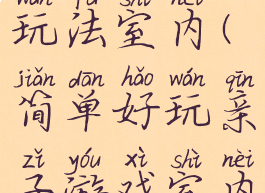 wán fǎ shì nèi
玩法室内(
jiǎn dān hǎo wán qīn
简单好玩亲
zǐ yóu xì shì nèi
子游戏室内